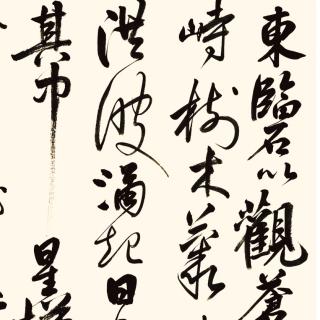 東臨石以觀蒼
峙樹木叢
洪波滴起日
其中星